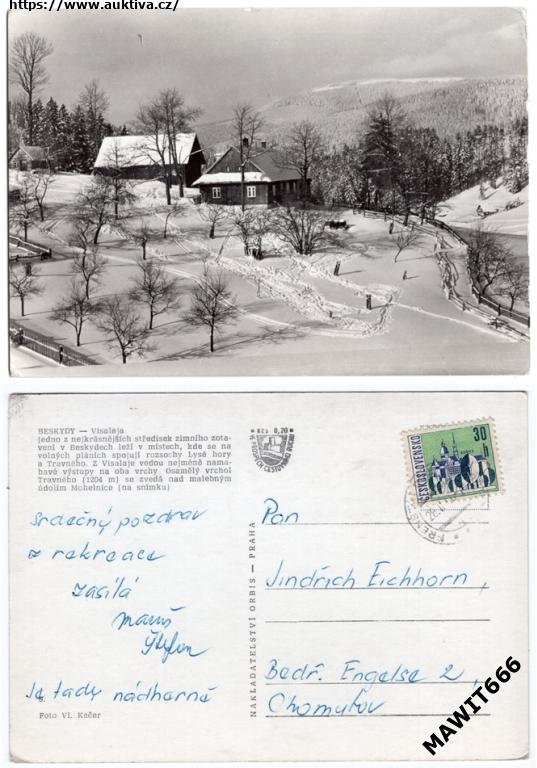 https://www.auktiva.cz/
BESKYDY — Visalaja
jedno z nejkrásnějších středisek zimního zota-
vení v Beskydech leží v místech, kde se na
volných pláních spojují rozsochy Lysé hory
a Travného. Z Visalaje vedou nejméně nama-
havé výstupy na oba vrchy Osamělý vrchol
Travného (1204 m) se zvedá nad malebným
údolím Mohelnice (na snímku)
Kčs 0,70
ČESKOSLOVENSKO
30
h
Srdečný pozdrav
z rekreace
zasílá
Pan
Jindřich Eichhorn,
Bedř. Engelse 2,
Chomutov
Je tady nádherně
Foto Vl. Kačer
NAKLADATELSTVÍ ORBIS — PRAHA
MAWIT666